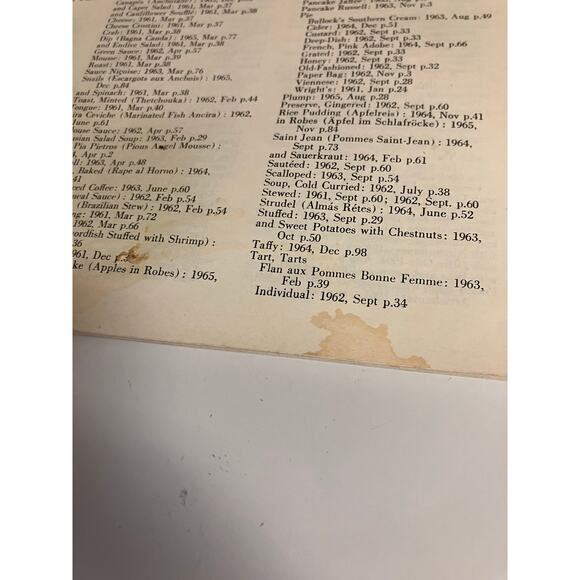 Canapés (Anchoïade): 1965,
and Caper Salad: 1961, Mar p.37
and Cauliflower Soufflé: 1961, Mar p.38
Cheese: 1961, Mar p.37
Cheese Crostini: 1961, Mar p.37
Crab: 1961, Mar p.38
Dip (Bagna Cauda): 1965, Mar p.77
and Endive Salad: 1961, Mar p.38
Green Sauce: 1962, Apr p.57
Mousse: 1961, Mar p.39
Roast: 1961, Mar p.38
Sauce Niçoise: 1963, Mar p.76
Snails (Escargots aux Anchois): 1965,
Dec p.84
and Spinach: 1961, Mar p.38
Toast, Minted (Thetchouka): 1962, Feb p.44
Tongue: 1961, Mar p.40
Ceviche (Marinated Fish Ancira): 1962,
June p.61
Sauce: 1962, Apr p.57
Salad Soup: 1963, Feb p.29
Pia Pietros (Pious Angel Mousse):
Apr p.2
1963, Apr p.48
Baked (Rape al Horno): 1964,
p.41
Coffee: 1963, June p.60
Sauce): 1962, Feb p.54
(Brazilian Stew): 1962, Feb p.54
1961, Mar p.72
1962, Mar p.66
Stuffed with Shrimp):
1961, Dec
(Apples in Robes): 1965,
Pancake Russell: 1963, Nov p.3
Pie
Bullock's Southern Cream: 1963, Aug p.49
Cider: 1964, Dec p.51
Custard: 1962, Sept p.33
Deep-Dish: 1962, Sept p.33
French, Pink Adobe: 1964, Sept p.66
Grated: 1962, Sept p.33
Honey: 1962, Sept p.33
Old-Fashioned: 1962, Sept p.32
Paper Bag: 1962, Nov p.3
Viennese: 1962, Sept p.28
Wright's: 1961, Jan p.24
Plump: 1965, Aug p.28
Preserve, Gingered: 1962, Sept p.60
Rice Pudding (Apfelreis): 1964, Nov p.41
in Robes (Äpfel im Schlafröcke): 1965,
Nov p.84
Saint Jean (Pommes Saint-Jean): 1964,
Sept p.73
and Sauerkraut: 1964, Feb p.61
Sautéed: 1962, Sept p.60
Scalloped: 1963, Sept p.54
Soup, Cold Curried: 1962, July p.38
Stewed: 1961, Sept p.60; 1962, Sept p.60
Strudel (Almás Rétes): 1964, June p.52
Stuffed: 1963, Sept p.29
and Sweet Potatoes with Chestnuts: 1963,
Oct p.50
Taffy: 1964, Dec p.98
Tart, Tarts
Flan aux Pommes Bonne Femme: 1963,
Feb p.39
Individual: 1962, Sept p.34